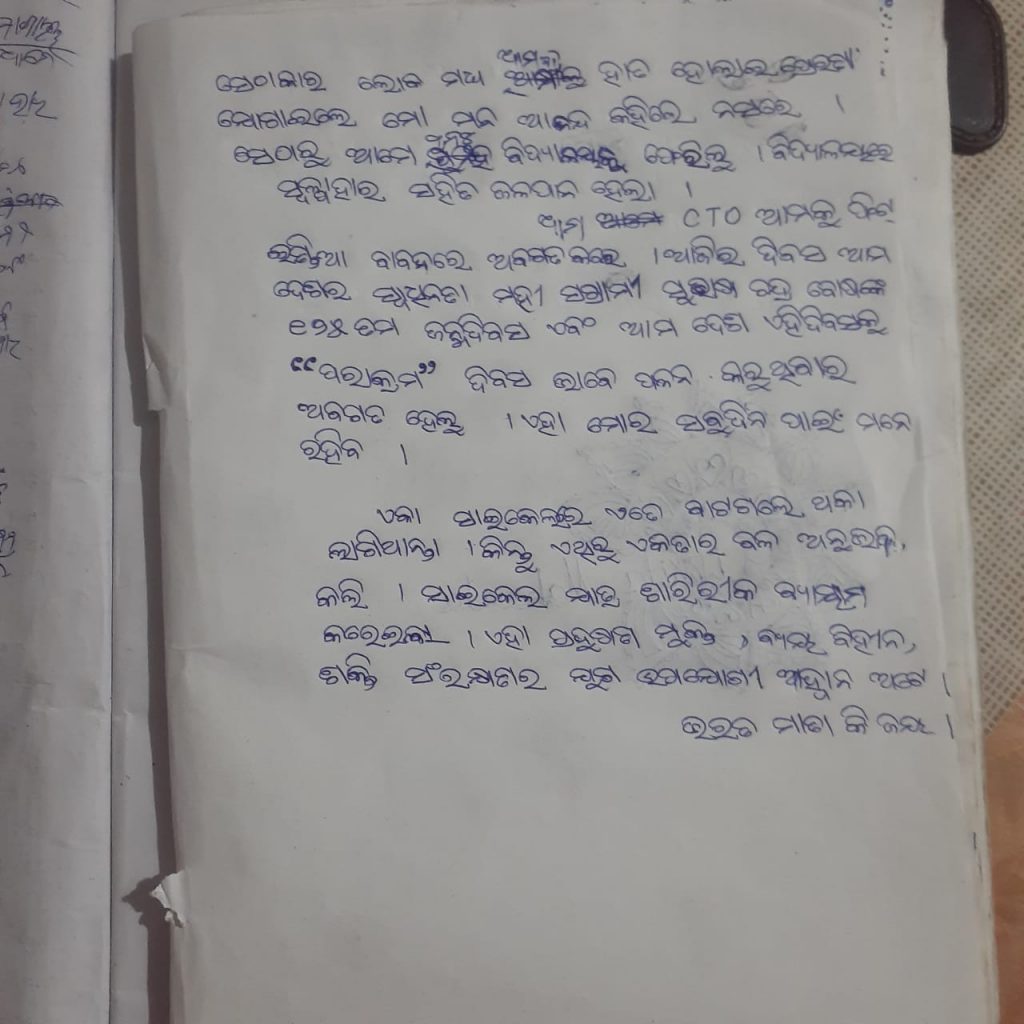 ସେଠାକାର ଲୋକ ମଧ୍ୟ ଆମକୁ ହାତ ହୋଲାଇ ପ୍ରେରଣା
ଯୋଗାଇଲେ ମୋ ମନ ଆନନ୍ଦ କହିଲେ ନସରେ ।
ସେଠାରୁ ଆମେ ପୁନଃ ବିଦ୍ୟାଳୟକୁ ଫେରିଲୁ । ବିଦ୍ୟାଳୟରେ
ସ୍ୱଳ୍ପାହାର ସହିତ ଜଳପାନ ହେଲା ।
ଆମ CTO ଆମକୁ ଫିଟ୍
ଇଣ୍ଡିଆ ବାବଦରେ ଅବଗତ କଲେ । ଆଜିର ଦିବସ ଆମ
ଦେଶର ସ୍ୱାଧିନତା ସଗ୍ରାମୀ ସୁଭାଷ ଚନ୍ଦ୍ର ବୋଷଙ୍କ
୧୨୫ ତମ ଜନ୍ମଦିବସ ଏବଂ ଆମ ଦେଶ ଏହିଦିବସକୁ
“ପରାକ୍ରମ” ଦିବସ ଭାବେ ପଳନ କରୁଥିବାର
ଅବଗତ ହେଲୁ । ଏହା ମୋର ସବୁଦିନ ପାଇଂ ମନେ
ରହିବ ।
ଏକା ସାଇକେଲରେ ଏତେ ବାଟଗଲେ ଥକା
ଲାଗିଥାନ୍ତା । କିନ୍ତୁ ଏଥିରୁ ଏକତାର ବଳ ଅନୁଭବ
କଲି । ସାଇକେଲ ଯାହା ଶାରିରୀକ ବ୍ୟାୟାମ
କରେଇବା । ଏହା ପ୍ରଦୁଷଣ ମୁକ୍ତ, ବ୍ୟୟ ବିହୀନ,
ଶକ୍ତି ସଂରକ୍ଷଣର ଯୁଗ ଉପଯୋଗୀ ଆହ୍ୱାନ ଅଟେ ।
ଭାରତ ମାତା କି ଜୟ ।